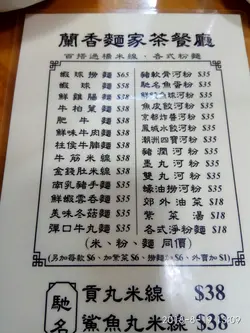 蘭香麵家茶餐廳
百搭過橋米線、各式粉麵
蝦球撈麵 $65
蝦球麵 $58
鮮雞腸麵 $35
牛柏葉麵 $35
肥牛麵 $35
鮮味牛肉麵 $35
柱侯牛腩麵 $35
牛筋米線 $35
金錢肚米線 $35
南乳豬手麵 $35
鮮蝦雲吞麵 $35
美味冬菇麵 $35
彈口牛丸麵 $35
豬軟骨河粉 $35
馳名魚蛋粉 $35
河粉 $35
魚皮餃河粉 $35
京都炸醬河粉 $35
鳳城水餃河粉 $35
豬潤河粉 $35
墨丸河粉 $35
雙丸河粉 $35
蠔油撈河粉 $35
郊外油菜 $18
紫菜湯 $18
各式淨粉麵 $18
(米、粉、麵 同價)
(另加每款$6、加紫菜$6、撈麵加$6、外賣加$1)
馳名
貢丸米線 $38
鯊魚丸米線 $38